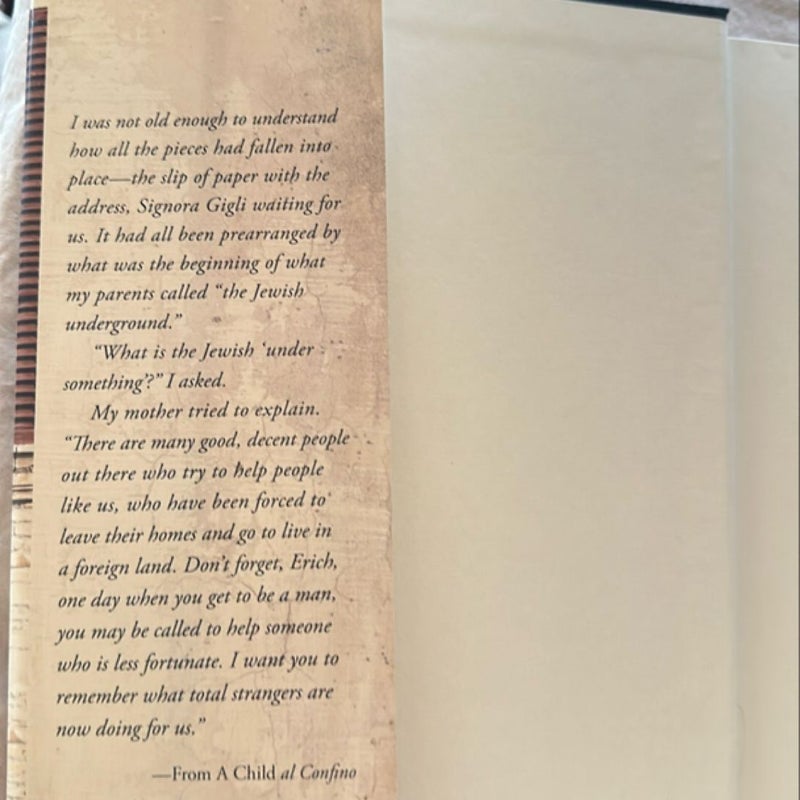 I was not old enough to understand
how all the pieces had fallen into
place—the slip of paper with the
address, Signora Gigli waiting for
us. It had all been prearranged by
what was the beginning of what
my parents called “the Jewish
underground.”
“What is the Jewish ‘under
something’?” I asked.
My mother tried to explain.
“There are many good, decent people
out there who try to help people
like us, who have been forced to
leave their homes and go to live in
a foreign land. Don’t forget, Erich,
one day when you get to be a man,
you may be called to help someone
who is less fortunate. I want you to
remember what total strangers are
now doing for us.”
—From A Child al Confino